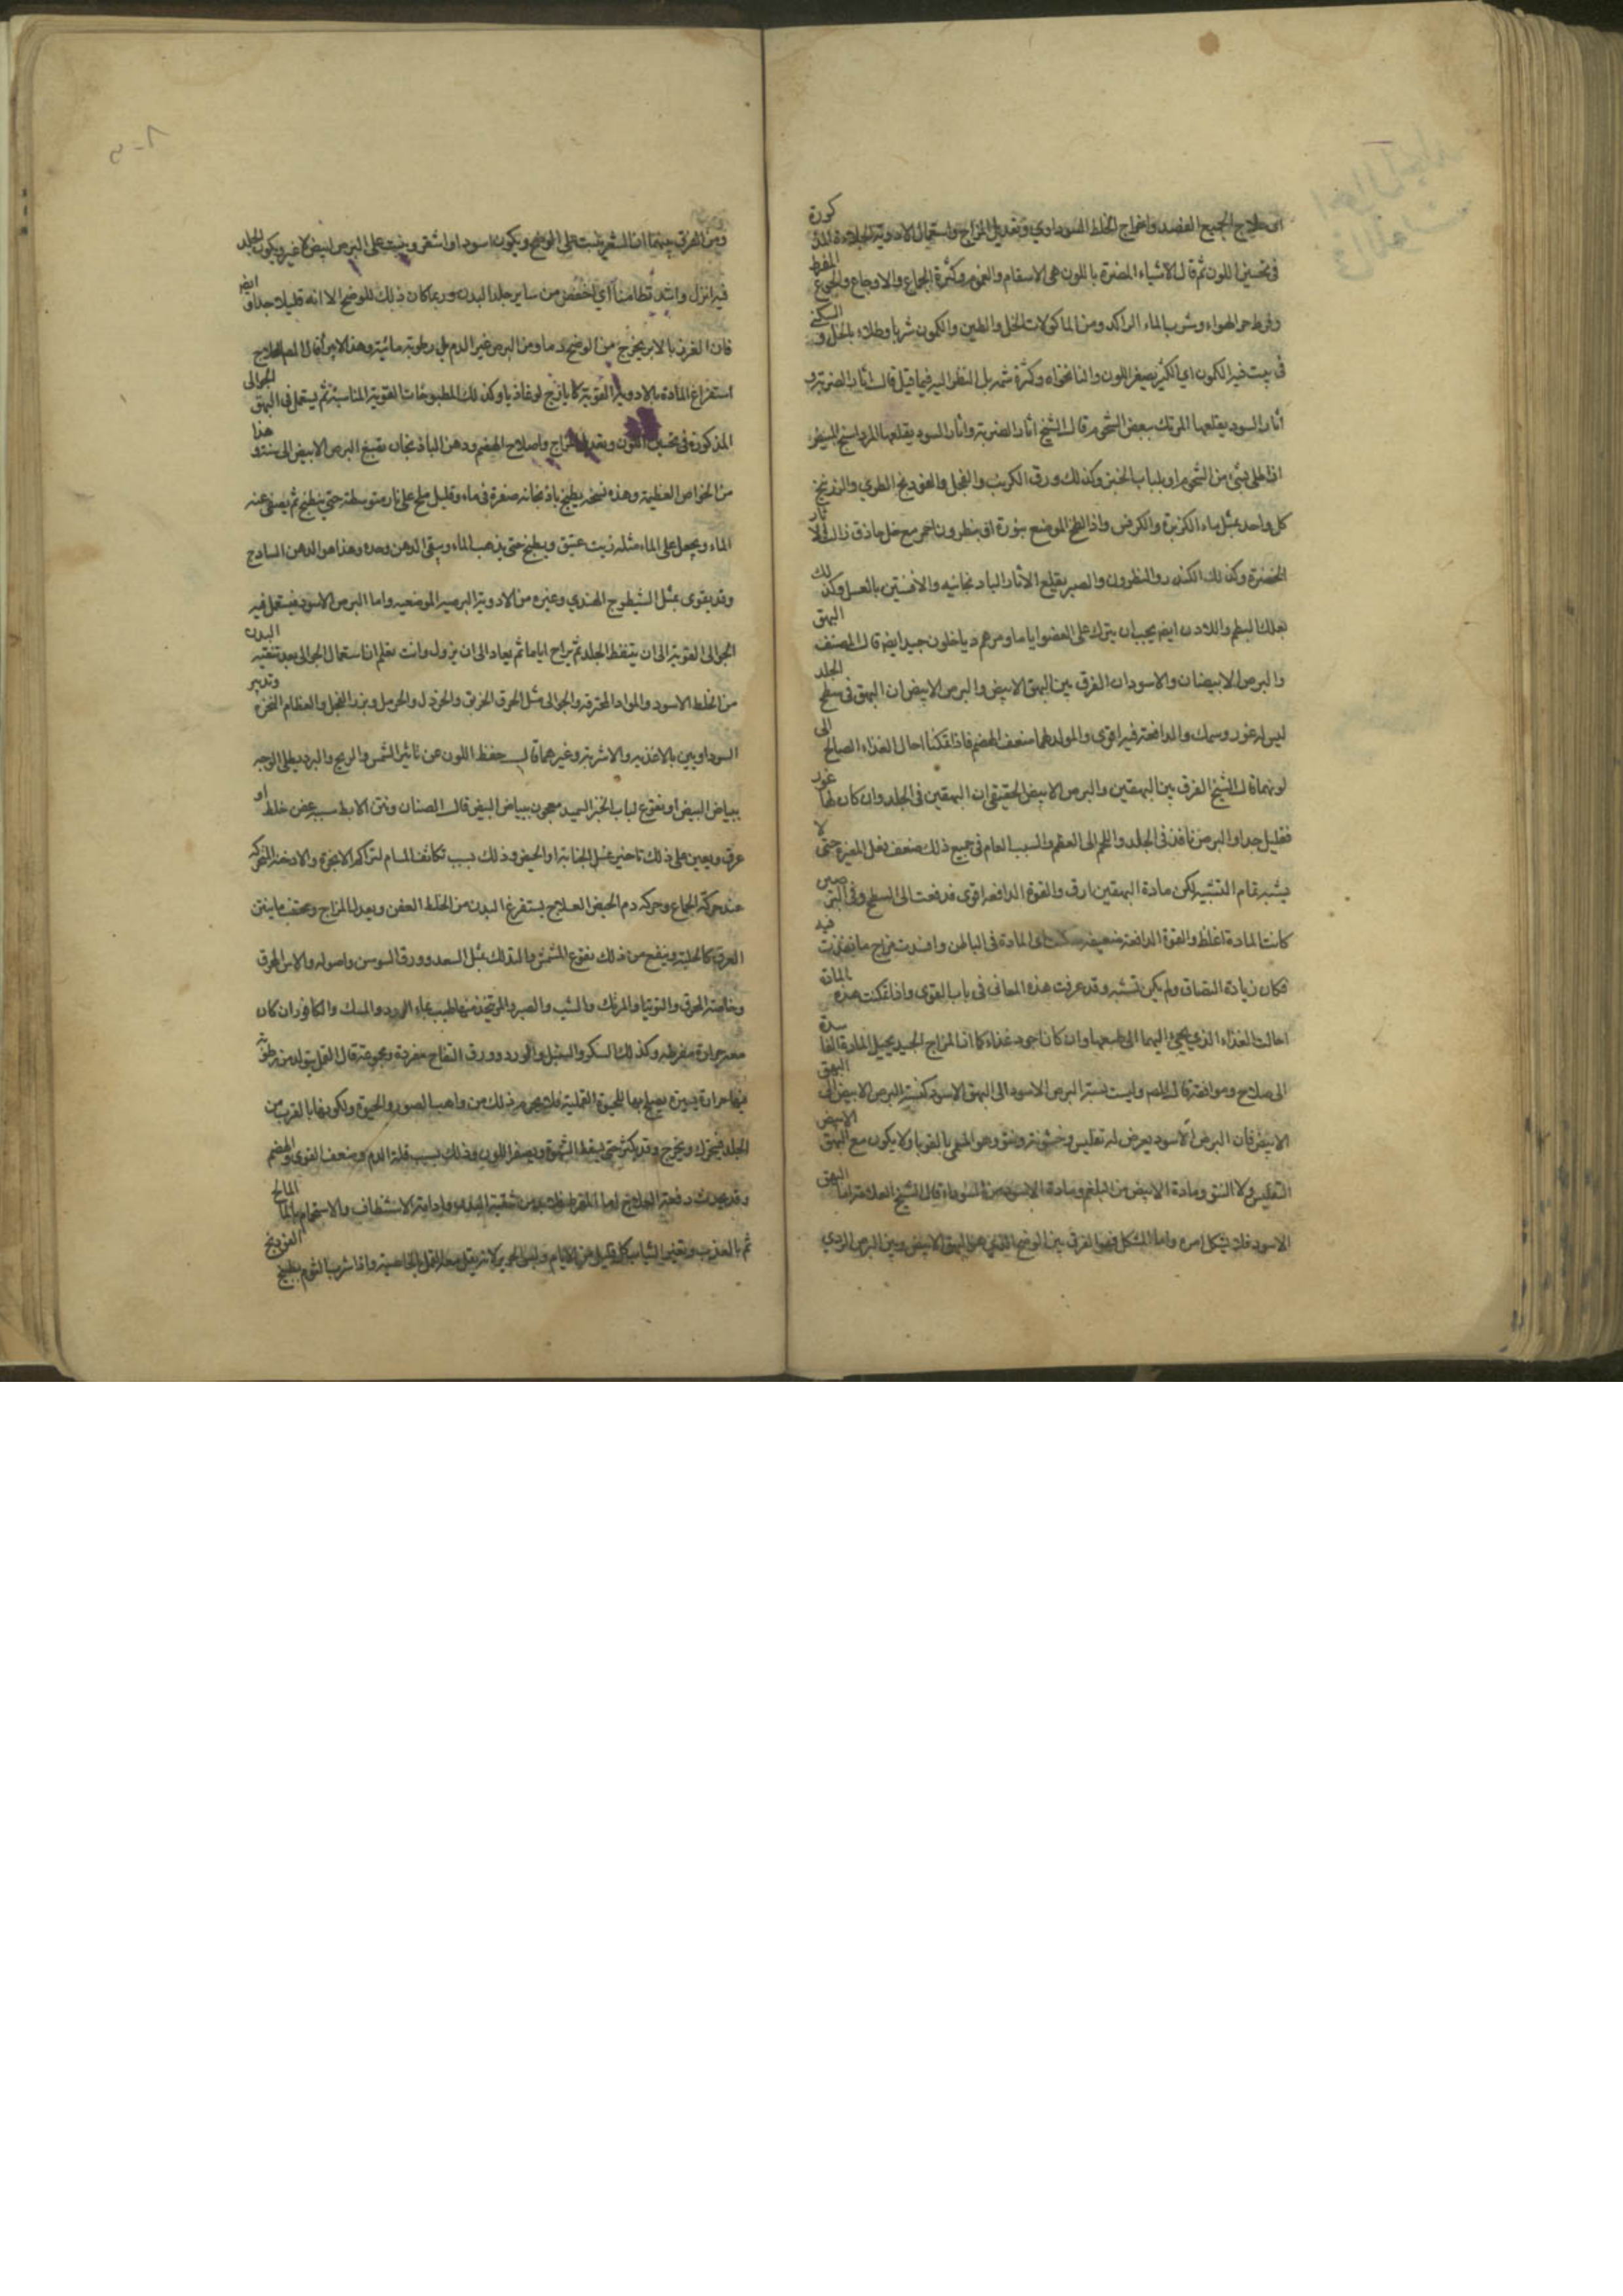 اى علاج الجميع الفصد واخراج الخلط السوداوي وتعديل المزاج واستعمال الادوية الجلاءة المذكورة
فى تحسين اللون ثم قال الاشياء المضرة باللون هى الاسقام والغموم وكثرة الجماع والاوجاع والجوع المفرط
وفرط حر الهواء وشرب الماء الراكد ومن الماكولات الخل والطين والكمون شربا وطلاء بالخل و السكنى
فى بيت فيه الكمون اى الكثير يصفر اللون والنانخواه وكثرة شمه بل النظر اليه فيما قيل قال آثار الضربة و
آثار السود يقلعها المرتك ببعض الشحوم قال الشيخ آثار الضربة وآثار السود يقلعها المرداسنج المبيض
اذا طلى بشئ من الشحوم او بلباب الخبز وكذلك ورق الكرنب والفجل والفودنج الطري والزرنيخ
كل واحد بمثل ماء الكزبرة والكرفس واذا لطخ الموضع بنورة او بنطرون احمر مع خل حاذق زالت الآثار
الخضرة وكذلك الكندر والنطرون والصبر يقلع الآثار الباذنجانيه والافسنتين بالعسل وكذلك
علك البطم واللادن ايضا يجب ان يترك على العضو اياما ومرهم دياخلون جيد ايضا قال المصنف البهق
والبرص الابيضان والاسودان الفرق بين البهق الابيض والبرص الابيض ان البهق فى سطح الجلد
ليس له غور وسمك والدافعة فيه اقوى والمولد لهما ضعف الهضم فاذا تمكنا احالا الغذاء الصالح الى
لونهما قال الشيخ الفرق بين البهقين والبرص الابيض الحقيقى ان البهقين فى الجلد وان كان لها غور
فقليل جدا والبرص نافذ فى الجلد واللحم الى العظم والسبب العام فى جميع ذلك ضعف فعل المغيرة حتى لا
يشبه تمام التشبيه لكن مادة البهقين ارق والقوة الدافعه اقوى فدفعت الى السطح وفى البرصين
كانت المادة اغلظ والقوة الدافعة ضعيفه المادة فى الباطن وافسدت مزاج ما نفذت فيه
فكان زيادة التصاق ولم يكن تشبه وقد عرفت هذه المعانى فى باب القوى واذا تمكنت هذه المادة
احالت الغذاء الذي يجئ اليهما الى طبعهما وان كان اجود غذاء كما ان المزاج الجيد يحيل المادة الفاسدة
الى صلاح وموافقة قال المصنف وليست نسبة البرص الاسود الى البهق الاسود كنسبة البرص الابيض الى البهق
الابيض فان البرص الاسود يعرض له تفليس وخشونة وهو المسمى بالقوبا ولا يكون مع البهق الابيض
التفليس ولا ومادة الابيض من البلغم ومادة الاسود من السوداء قال الشيخ العلامة اما البهق
الاسود فلا يشكل امره واما المشكل فهو الفرق بين الوضح الذي هو البهق الابيض وبين البرص الردي
ومن الفرق بينهما ان الشعر ينبت على الوضح ويكون اسود او اشقر وينبت على البرص ابيض لا غير ويكون الجلد
فيه انزل واشد تطامنا اي اخفض من ساير جلد البدن وربما كان ذلك للوضح الا انه قليلا جدا ايضا
فان الغرز بالابر يخرج من الوضح دما ومن البرص غير الدم بل رطوبة مائية وهذا لا يبرأ قال المصنف العلاج
استفراغ المادة بالادوية القوية كايارج لوغاذيا وكذلك المطبوخات القوية المناسبة ثم يستعمل فى البهق الجوالى
المذكورة فى تحسين اللون وتعديل المزاج واصلاح الهضم ودهن الباذنجان يصبغ البرص الابيض الى سنة وهذا
من الخواص العظيمة وهذه نسخته يطبخ باذنجانه صفرة فى ماء وقليل ملح على نار متوسطة حتى ينطبخ ثم يصفى عنه
الماء ويجعل على الماء مثله زيت عتيق ويطبخ حتى يذهب الماء ويبقى الدهن وحده وهذا هو الدهن الساذج
وقد يقوى بمثل الشيطرج الهندي وغيره من الادوية البرصية الموضعيه واما البرص الاسود فيستعمل فيه
الجوالى القوية الى ان يتنفط الجلد ثم يراح اياما ثم يعاد الى ان يزول وانت تعلم ان استعمال الجوالى بعد تنقيه البدن
من الخلط الاسود والمواد المحترقه والجوالى مثل الحرق الخربق والخردل والحرمل وبزر الفجل والعظام النخرة وتدبير
السوداويين بالاغذيه والاشربة وغيرهما قال حفظ اللون عن تاثير الشمس والريح والبرد يطلى الوجه
ببياض البيض او بنقوع لباب الخبز السميد معجون ببياض البيض قال الصنان ونتن الابط سببه عفن خلط او
عرق ويعين على ذلك تاخير غسل الجنابة او الحيض وذلك بسبب تكاثف المسام لتراكم الابخرة والادخنة المتحركة
عند حركة الجماع وحركه دم الحيض العلاج يستفرغ البدن من الخلط العفن ويعدل المزاج ويجتنب ما ينتن
العرق كالحلبة وينفع من ذلك نقوع المشمش والتدلك بمثل السعد وورق السوسن واصوله والاس المحرق
وخاصة المحرق والتوتيا والمرتك والشب والصبر والمر يتخذ منها طيب بماء الورد والمسك والكافور ان كان
معه حرارة مفرطه وكذلك السكر والسنبل والورد وورق التفاح مفردة ومجموعة قال القمل يتولد من رطوبة
فيها حرارة يسيرة يصلح بها للحيوة القملية فلا يحرم ذلك من واهب الصور والحيوة ويكون بقايا القرب من
الجلد فيتحرك ويخرج وقد يكثر حتى يسقط الشهوة ويصفر اللون وذلك بسبب قلة الدم وضعف القوى والهضم
وقد يحدث دفعة العلاج اما المفرط فلا بد من تنقية البدن وادامة الاستنظاف والاستحمام بالماء المالح
ثم بالعذب وتغيير الثياب كل قليل من الايام ولبس الحرير لا تربية القمل بالخاصية واذا شرب الثوم بطبيخ الفودنج